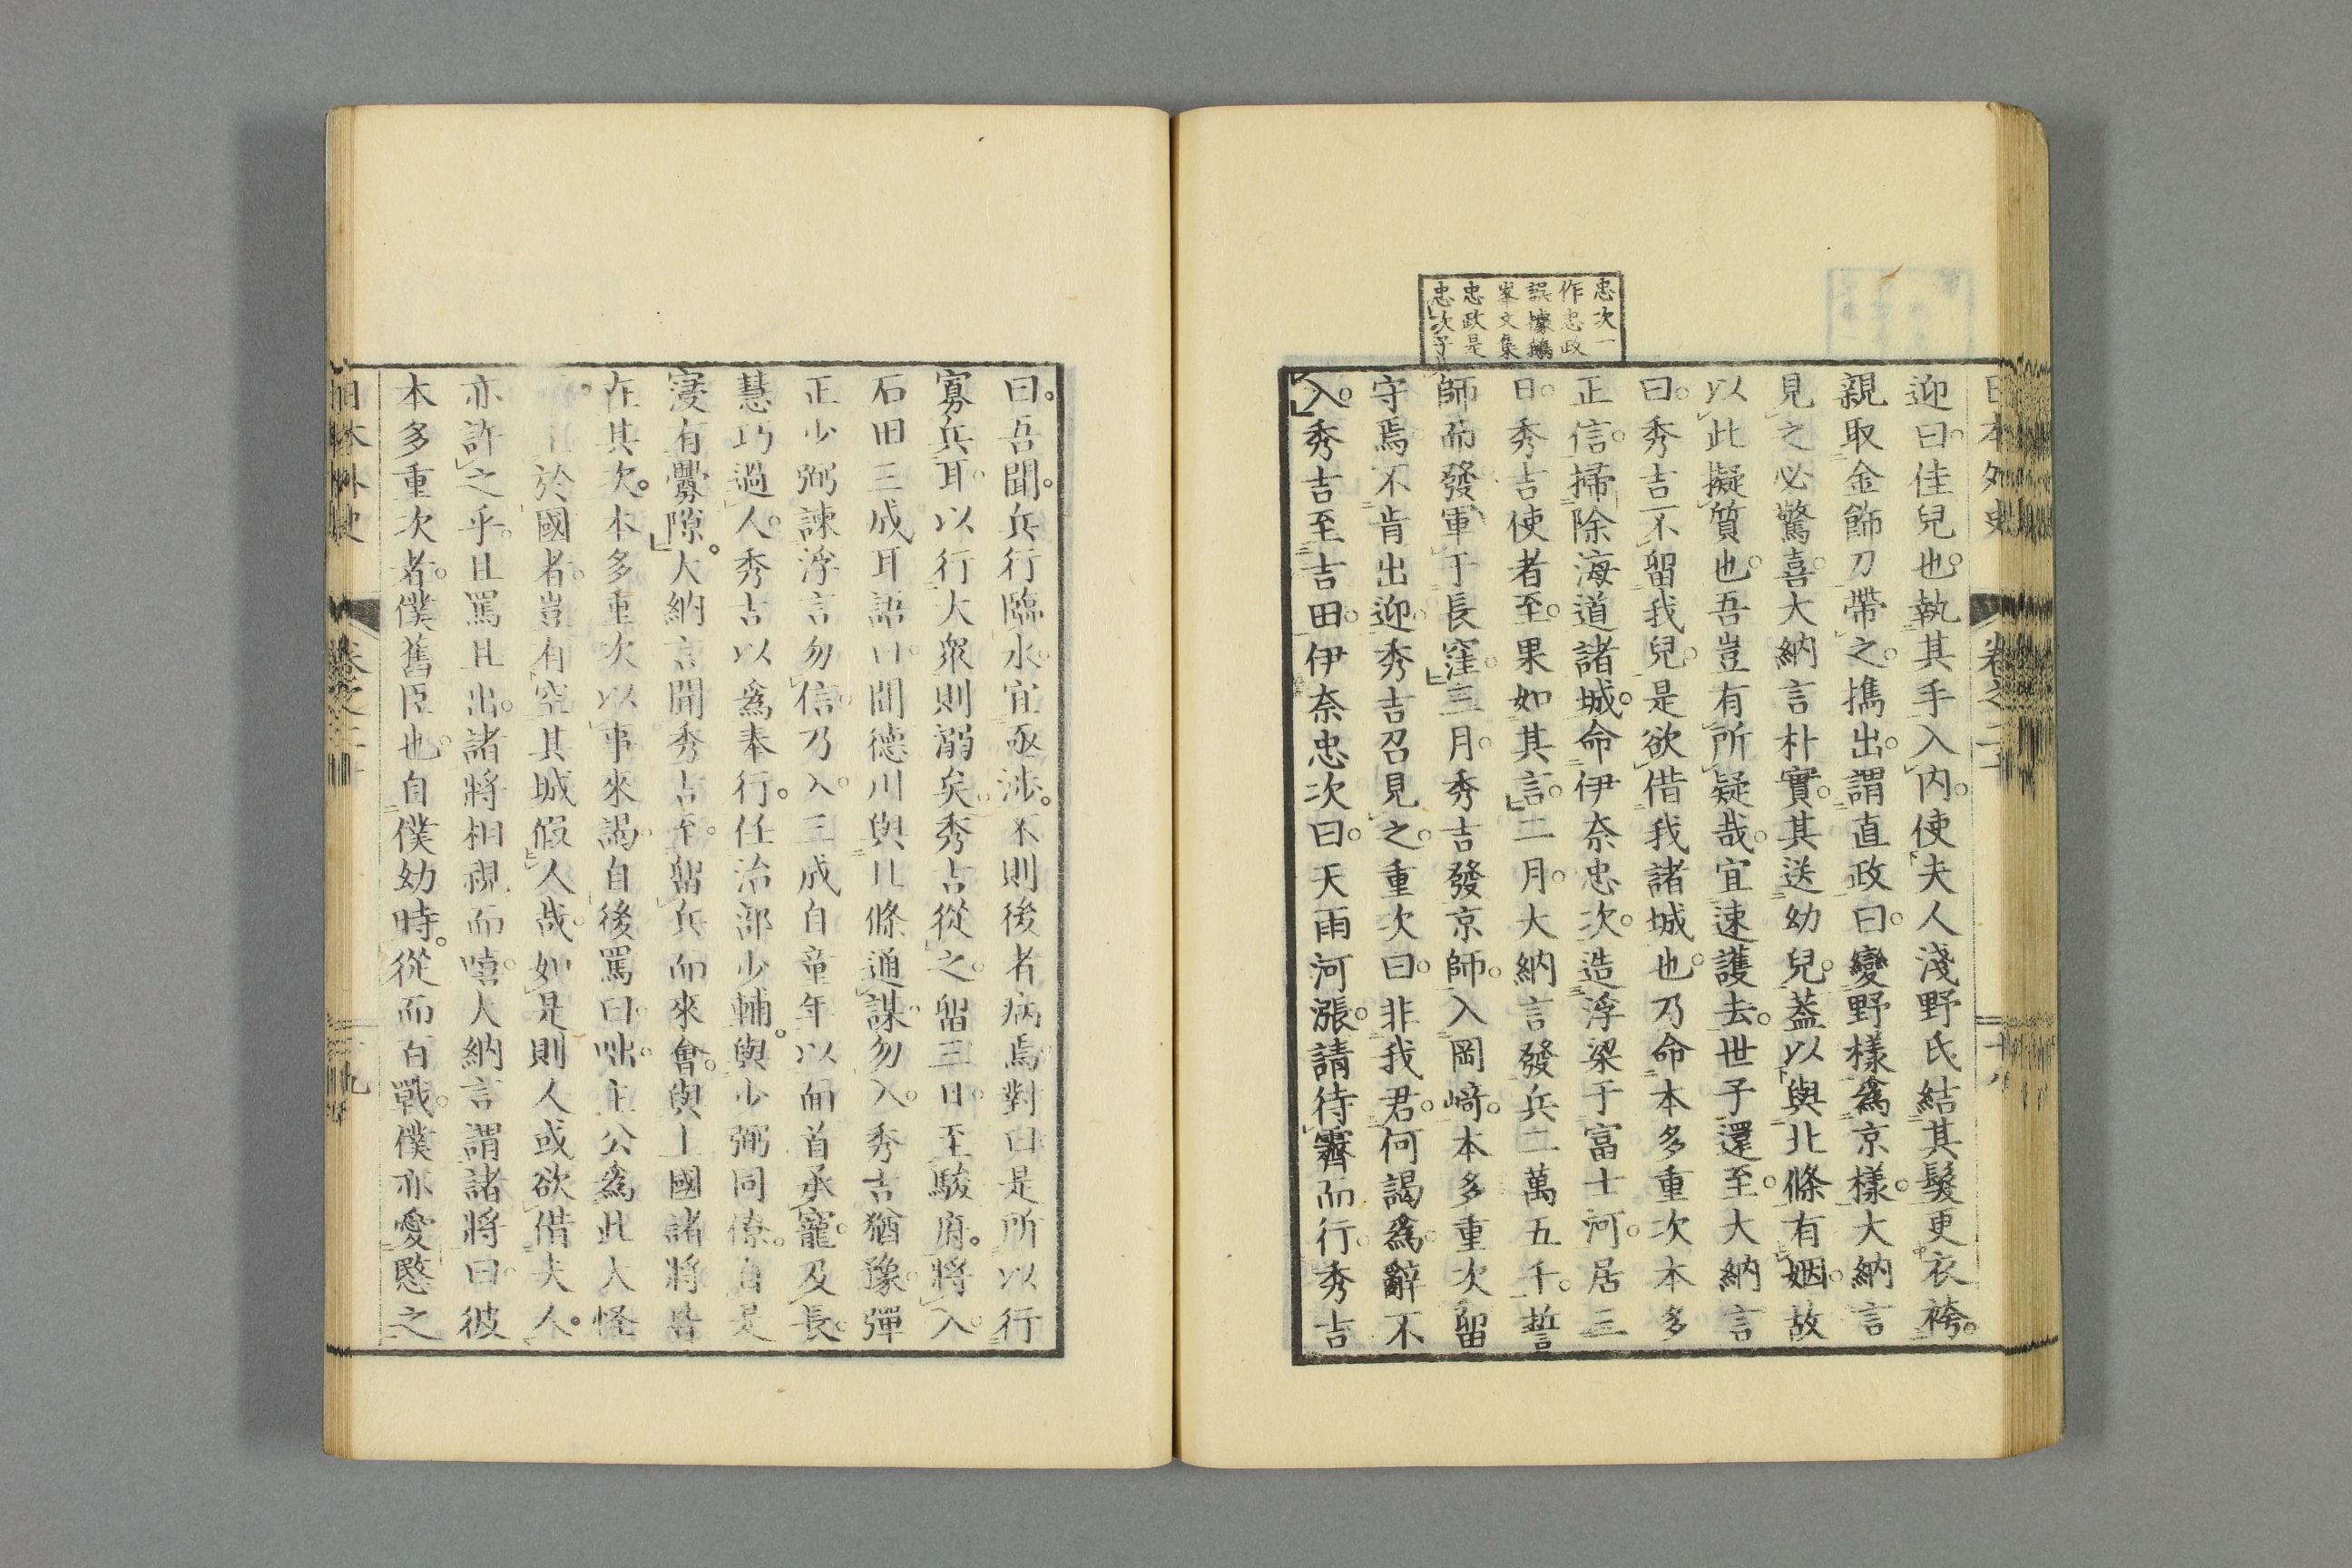 日本外史 卷之二十 十八
迎曰。佳兒也。執其手入內。使夫人淺野氏結其髮更衣袴。
親取金飾刀帶之。攜出。謂直政曰。變野樣為京樣。大納言
見之必驚喜。大納言朴實。其送幼兒。蓋以與北條有姻。故
以此擬質也。吾豈有所疑哉。宜速護去。世子還至。大納言
曰。秀吉不留我兒。是欲借我諸城也。乃命本多重次本多
正信。掃除海道諸城。命伊奈忠次。造浮梁于富士河。居三
日。秀吉使者至。果如其言。二月。大納言發兵二萬五千。誓
師而發。軍于長窪。三月。秀吉發京師。入岡﨑。本多重次留
守焉。不肯出迎。秀吉召見之。重次曰。非我君。何謁為。辭不
入。秀吉至吉田。伊奈忠次曰。天雨河漲。請待霽而行。秀吉
忠次一
作忠政
誤據鵝
峯文集
忠政是
忠次子
曰。吾聞。兵行臨水。宜亟涉。不則後者病焉。對曰。是所以行
寡兵耳。以行大衆則溺矣。秀吉從之。留三日。至駿府。將入。
石田三成耳語曰。聞德川與北條通謀。勿入。秀吉猶豫。彈
正少弼諫。浮言勿信。乃入。三成自童年以面首承寵。及長。
慧巧過人。秀吉以為奉行。任治部少輔。與少弼同僚。自是
寖有釁隙。大納言聞秀吉至。留兵而來會。與上國諸將皆
在其次。本多重次以事來謁。自後罵曰。咄。主公為此大怪
於國者。豈有空其城假人哉。如是則人或欲借夫人。
亦許之乎。且罵且出。諸將相視而嘻。大納言謂諸將曰。彼
本多重次者。僕舊臣也。自僕幼時。從而百戰。僕亦愛愍之
日本外史 卷之二十 十九